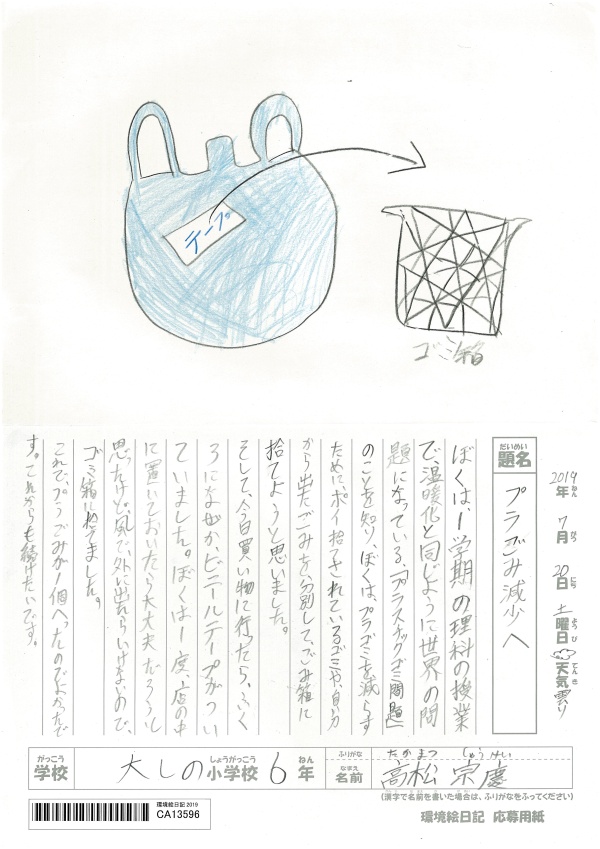 テープ
ゴミ箱
2019年 7月 20日 土曜日 天気 曇り
ねん がつ にち ようび てんき
だいめい
題名
プラごみ減少へ
ぼくは、1学期の理科の授業
で、温暖化と同じように世界の問
題になっている、「プラスチックゴミ問題」
のことを知り、ぼくは、プラゴミを減らす
ために、ポイ捨てされているゴミや、自分
から出たごみを分別して、ごみ箱に
捨てようと思いました。
そして、今日買い物に行ったら、ふく
ろになぜか、ビニールテープがつい
ていました。ぼくは1度、店の中
に置いておいたら大丈夫だろうと
思ったけど、風で、外に出たらいけないので、
ゴミ箱にすてました。
これで、プラごみが1個へったのでよかったで
す。これからも続けたいです。
がっこう しょうがっこう ねん
学校 大しの小学校 6年
ふりがな たかまつ しゅうけい
なまえ
名前 高松 宗慶
(漢字で名前を書いた場合は、ふりがなをふってください)
環境絵日記2019
CA13596
環境絵日記 応募用紙